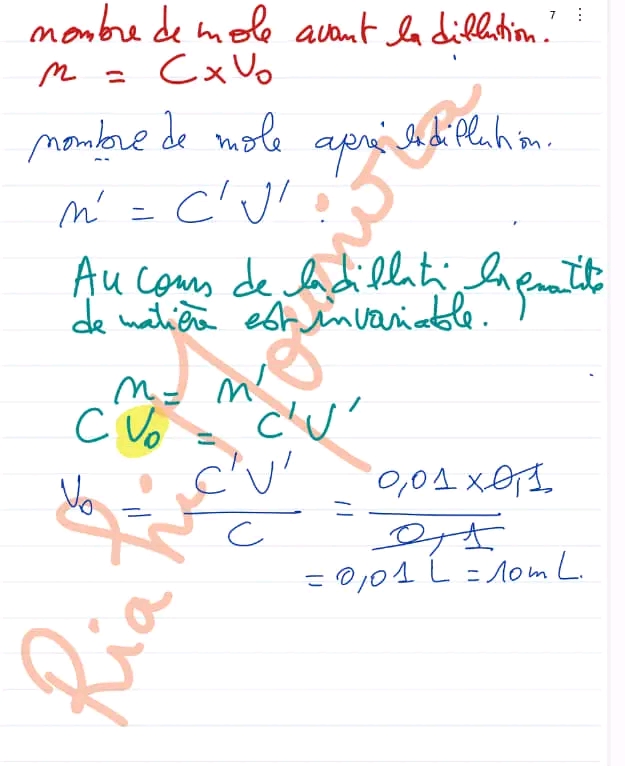 7
nombre de mole avant la dillution.
n = C x V₀
nombre de mole après la dillution.
n' = C'V' :
Au cours de la dillati la quantité
de matière est invariable.
n = n'
C V₀ = C'V'
V₀ = C'V' / C = 0,01 x 0,1 / 0,1
= 0,01 L = 10 mL.
Riahi Mounira